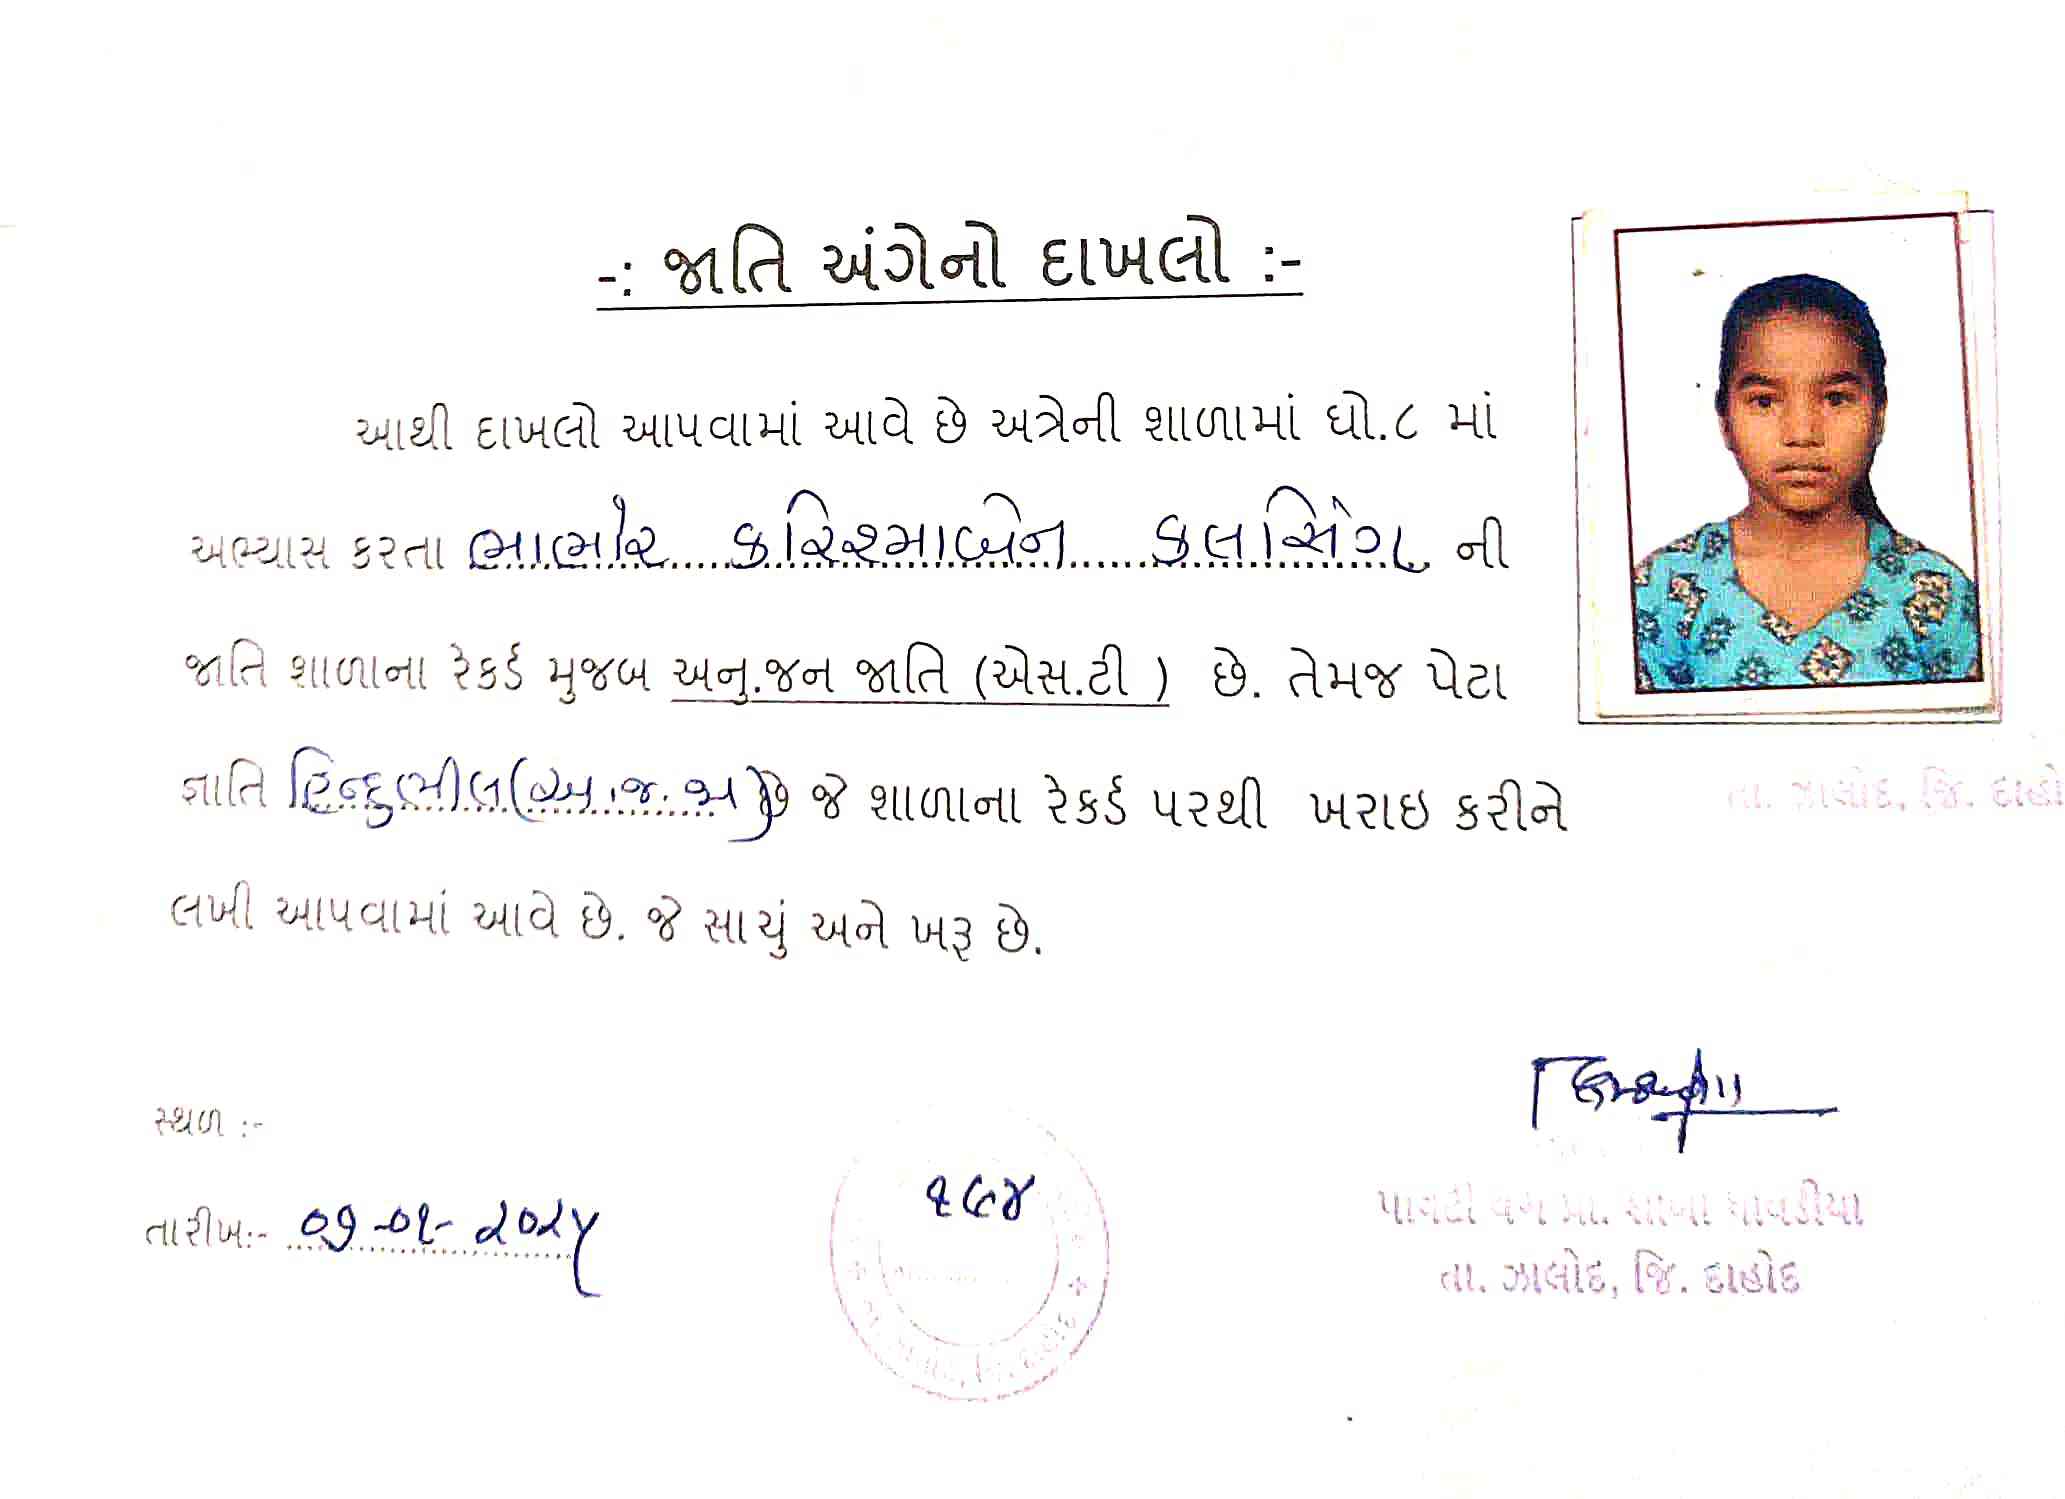 -: જાતિ અંગેનો દાખલો :-
આથી દાખલો આપવામાં આવે છે અત્રેની શાળામાં ધો.૮ માં
અભ્યાસ કરતા ભાભોર કરિશ્માબેન કલસિંગ ની
જાતિ શાળાના રેકર્ડ મુજબ અનુ.જન જાતિ (એસ.ટી ) છે. તેમજ પેટા
જ્ઞાતિ હિન્દુભીલ(અ.જ.જા) છે જે શાળાના રેકર્ડ પરથી ખરાઇ કરીને
લખી આપવામાં આવે છે. જે સાચું અને ખરૂ છે.
તા. ઝાલોદ, જિ. દાહો
સ્થળ :-
તારીખ:- ૦૭-૦૧-૨૦૨૫
તા. ઝાલોદ, જિ. દાહોદ